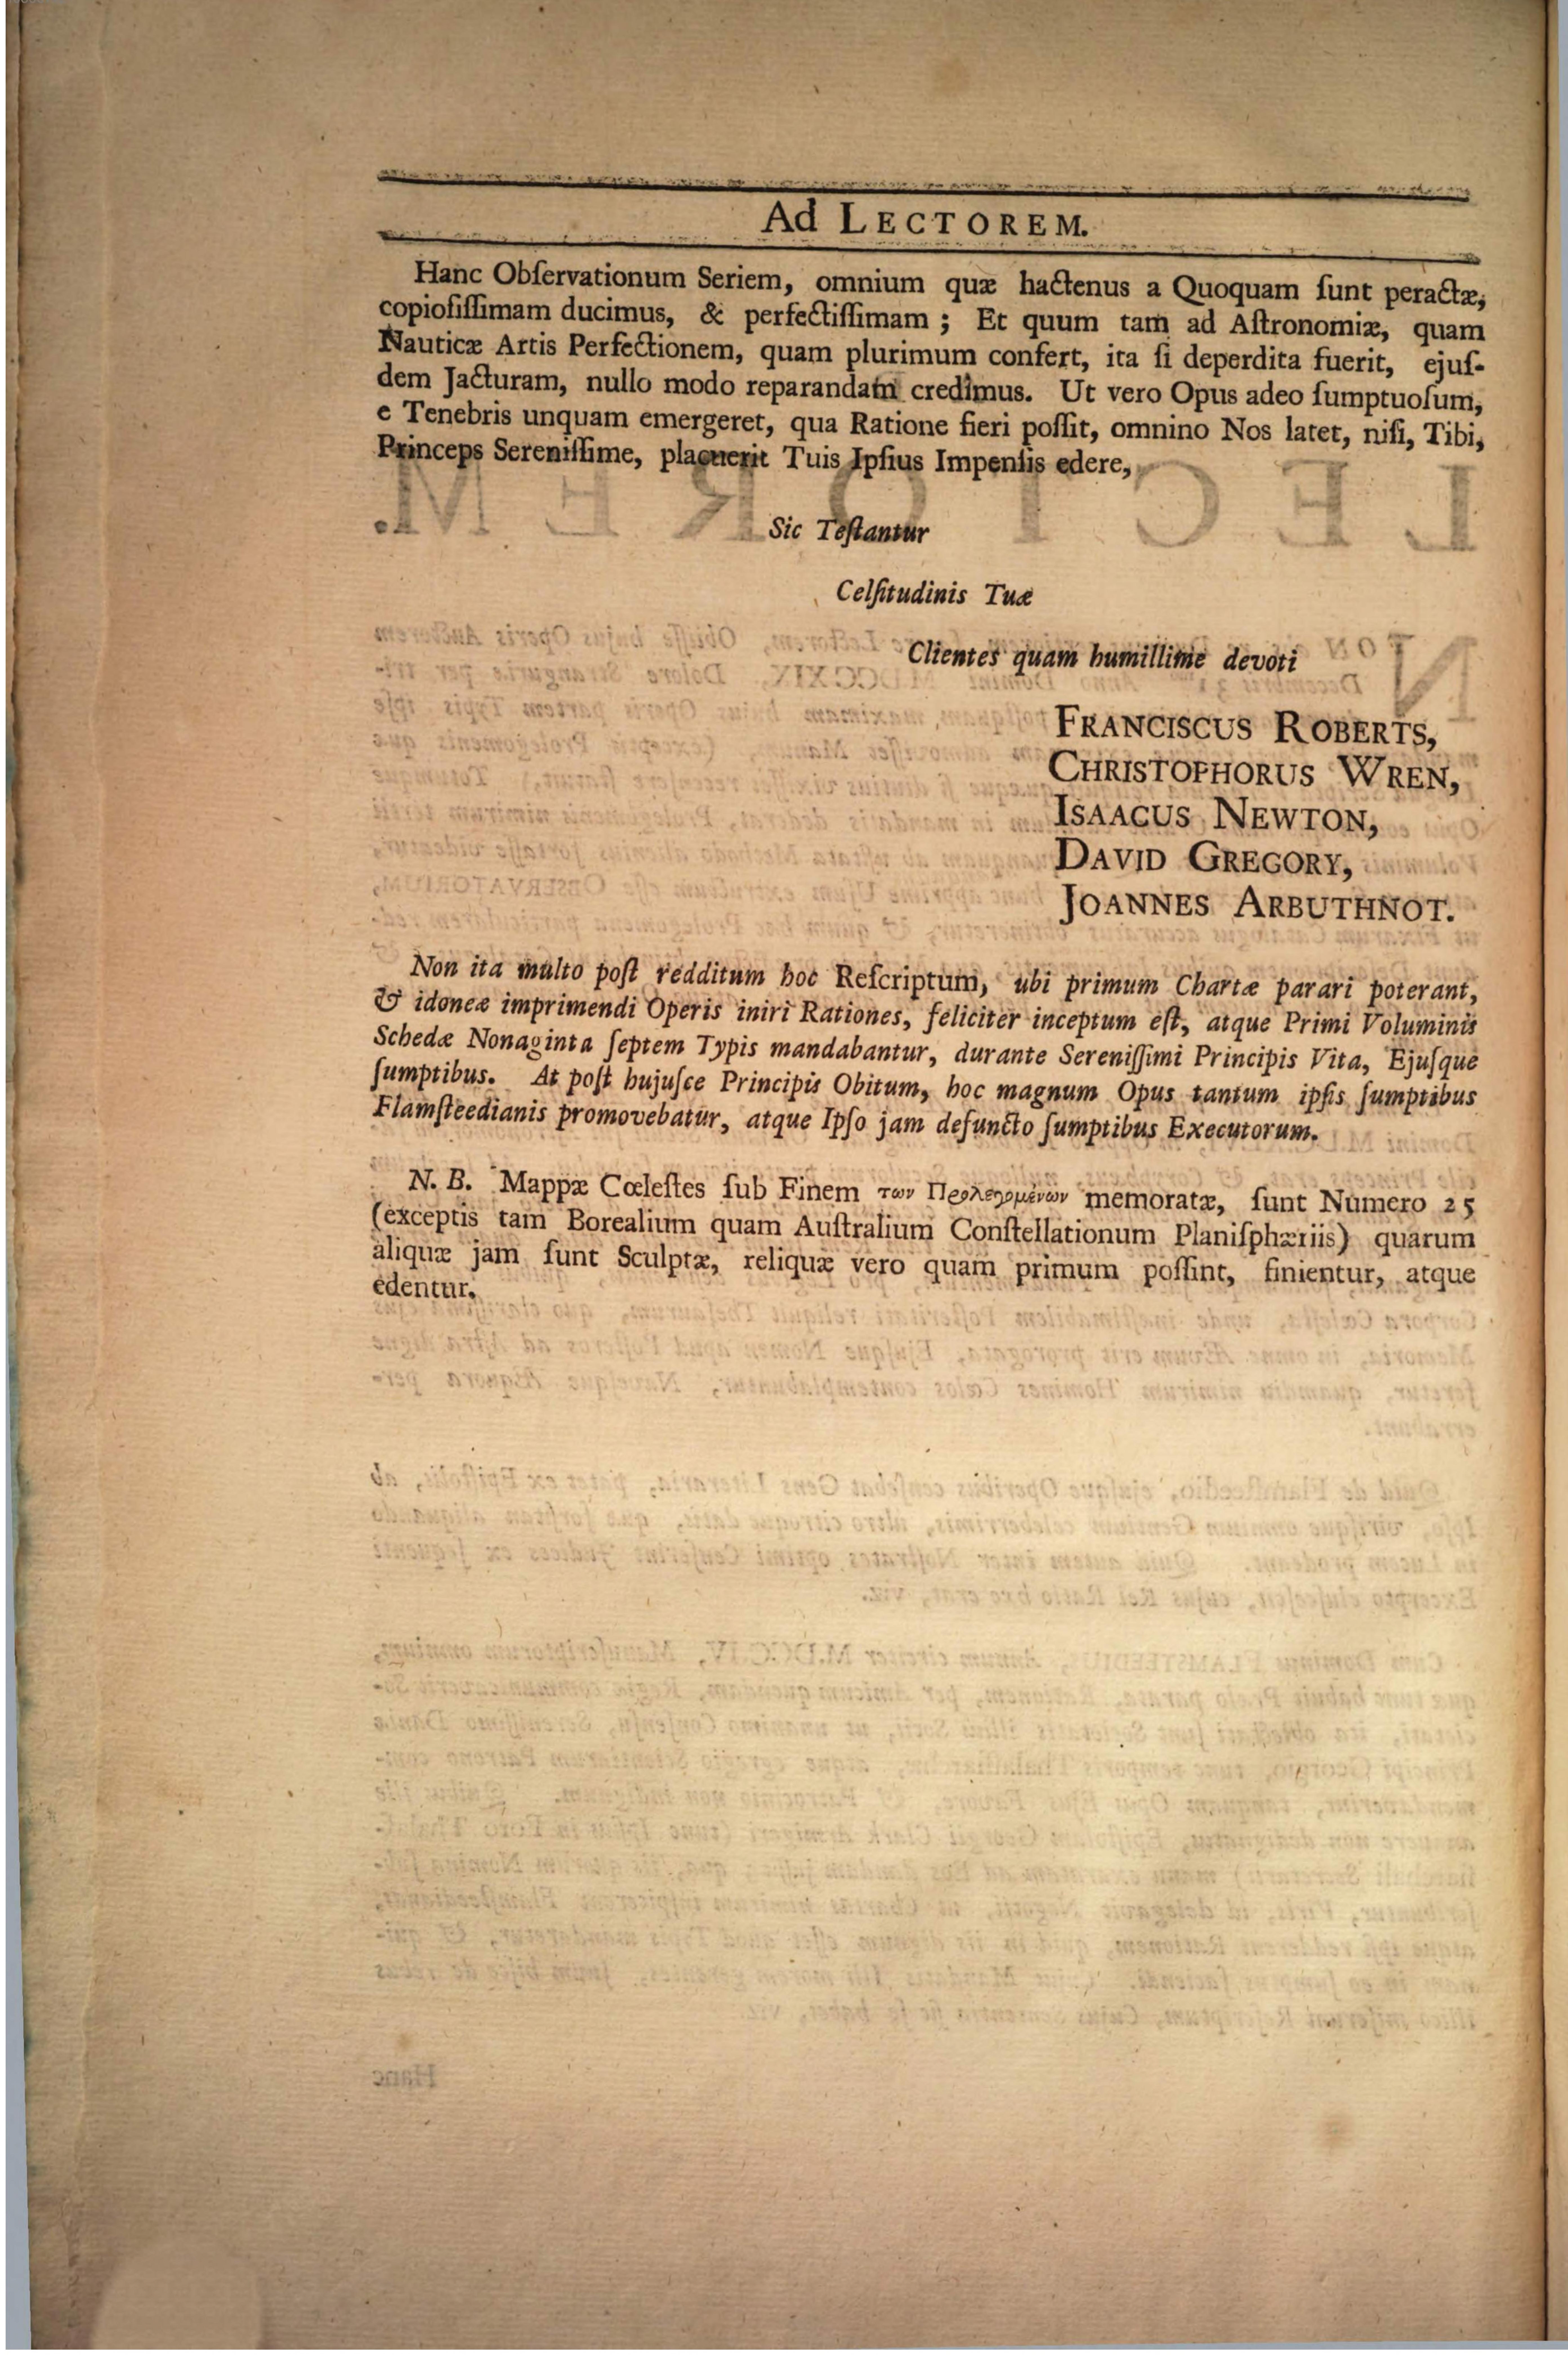 Ad LECTOREM.
Hanc Obſervationum Seriem, omnium quæ hactenus a Quoquam ſunt peractæ,
copioſiſſimam ducimus, & perfectiſſimam ; Et quum tam ad Aſtronomiæ, quam
Nauticæ Artis Perfectionem, quam plurimum confert, ita ſi deperdita fuerit, ejuſ-
dem Jacturam, nullo modo reparandam credimus. Ut vero Opus adeo ſumptuoſum,
e Tenebris unquam emergeret, qua Ratione fieri poſſit, omnino Nos latet, niſi, Tibi,
Princeps Sereniſſime, placuerit Tuis Ipſius Impenſis edere,
Sic Teſtantur
Celſitudinis Tuæ
Clientes quam humillime devoti
FRANCISCUS ROBERTS,
CHRISTOPHORUS WREN,
ISAACUS NEWTON,
DAVID GREGORY,
JOANNES ARBUTHNOT.
Non ita multo poſt redditum hoc Reſcriptum, ubi primum Chartæ parari poterant,
& idoneæ imprimendi Operis iniri Rationes, feliciter inceptum eſt, atque Primi Voluminis
Schedæ Nonaginta ſeptem Typis mandabantur, durante Sereniſſimi Principis Vita, Ejuſque
ſumptibus. At poſt hujuſce Principis Obitum, hoc magnum Opus tantum ipſis ſumptibus
Flamſteedianis promovebatur, atque Ipſo jam defuncto ſumptibus Executorum.
N. B. Mappæ Cœleſtes ſub Finem των Προλεγομένων memoratæ, ſunt Numero 25
(exceptis tam Borealium quam Auſtralium Conſtellationum Planiſphæriis) quarum
aliquæ jam ſunt Sculptæ, reliquæ vero quam primum poſſint, finientur, atque
edentur.